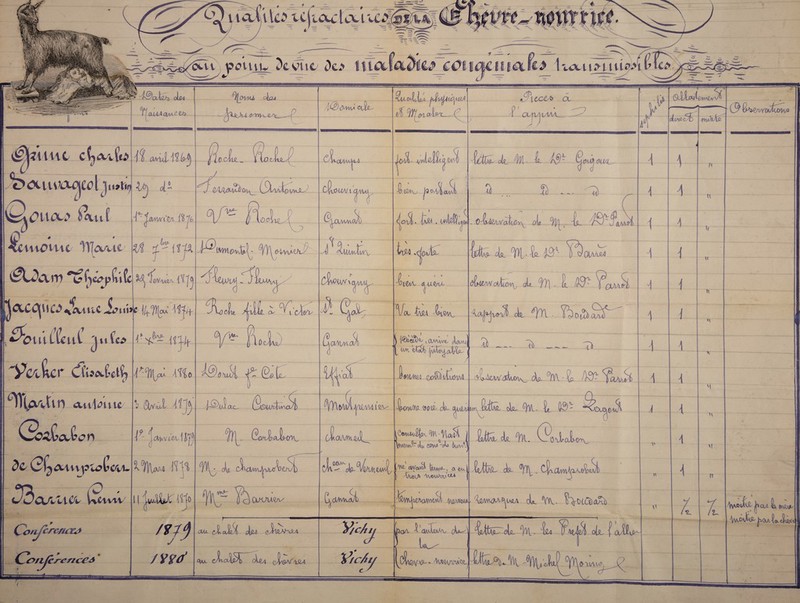 Qualités réfractaires DE LA Chèvre-nourrice.
au point De vue Des maladies congénitales transmissibles
Dates des Naissances
Noms des personnes
Domicile
Qualités physiques et Morales
Pièces à l'appui
syphilis
Allaitement
direct mixte
Observations
Prime charles 18 avril 1869 Roche. Rachel Champs fort intelligent lettre de M. le Dr Gorgaux 1 1 "
Sauvageot Justin 29 d° Terrandon Antoine Chouvigny bien portant d° d° d° 1 1 "
Gonas Paul 1er Janvier 1870 Vve Roche Gannat fort. très. intelligent observation de M. le Dr Parrot 1 1 "
Lemoine Marie 28 7bre 1872 Damontel. Mosnier St Quintin très-forte lettre de M. le Dr Barres 1 1 "
Adam Théophile 29 Février 1879 Fleury-Fleury chouvigny bien guéri observation de M. le Dr Parrot 1 1 "
Jacques Laure Louise 14 Mai 1874 Roche fille à Victor St Gal Va très bien rapport de M Boudard 1 1 "
Fouilleul Jules 1er xbre 1874 Vve Roche Gannat arrivé dans un état pitoyable d° d° d° 1 1 "
Verher Elisabeth 1er Mai 1880 Effiat bonnes conditions observation de M. le Dr Parrot 1 1 "
Martin antoine 3 Avril 1879 Dulac Courtinat Montpensier bonne voie de guérison lettre de M. le Dr 1 1 "
Corbabon 1er Janvier 1879 M. Corbabon charmeil lettre de M. Corbabon " 1 "
De Champrobert 2 Mars 1878 M. de champrobert chau de Verneuil trois nourrices lettre de M. Champrobert " 1 "
Barrier Henri 11 Juillet 1870 Mme Barrier Gannat tempérament nerveux remarques de M. Boudard " 1/2 1/2 moitié par la mère moitié par la chèvre
Conférences 1879 au chalet des chèvres Vichy par l'auteur du lettre de M. les Préfet de l'allier
Conférences 1880 au chalet des chèvres Vichy Chèvre-nourrice lettre de M. Michel